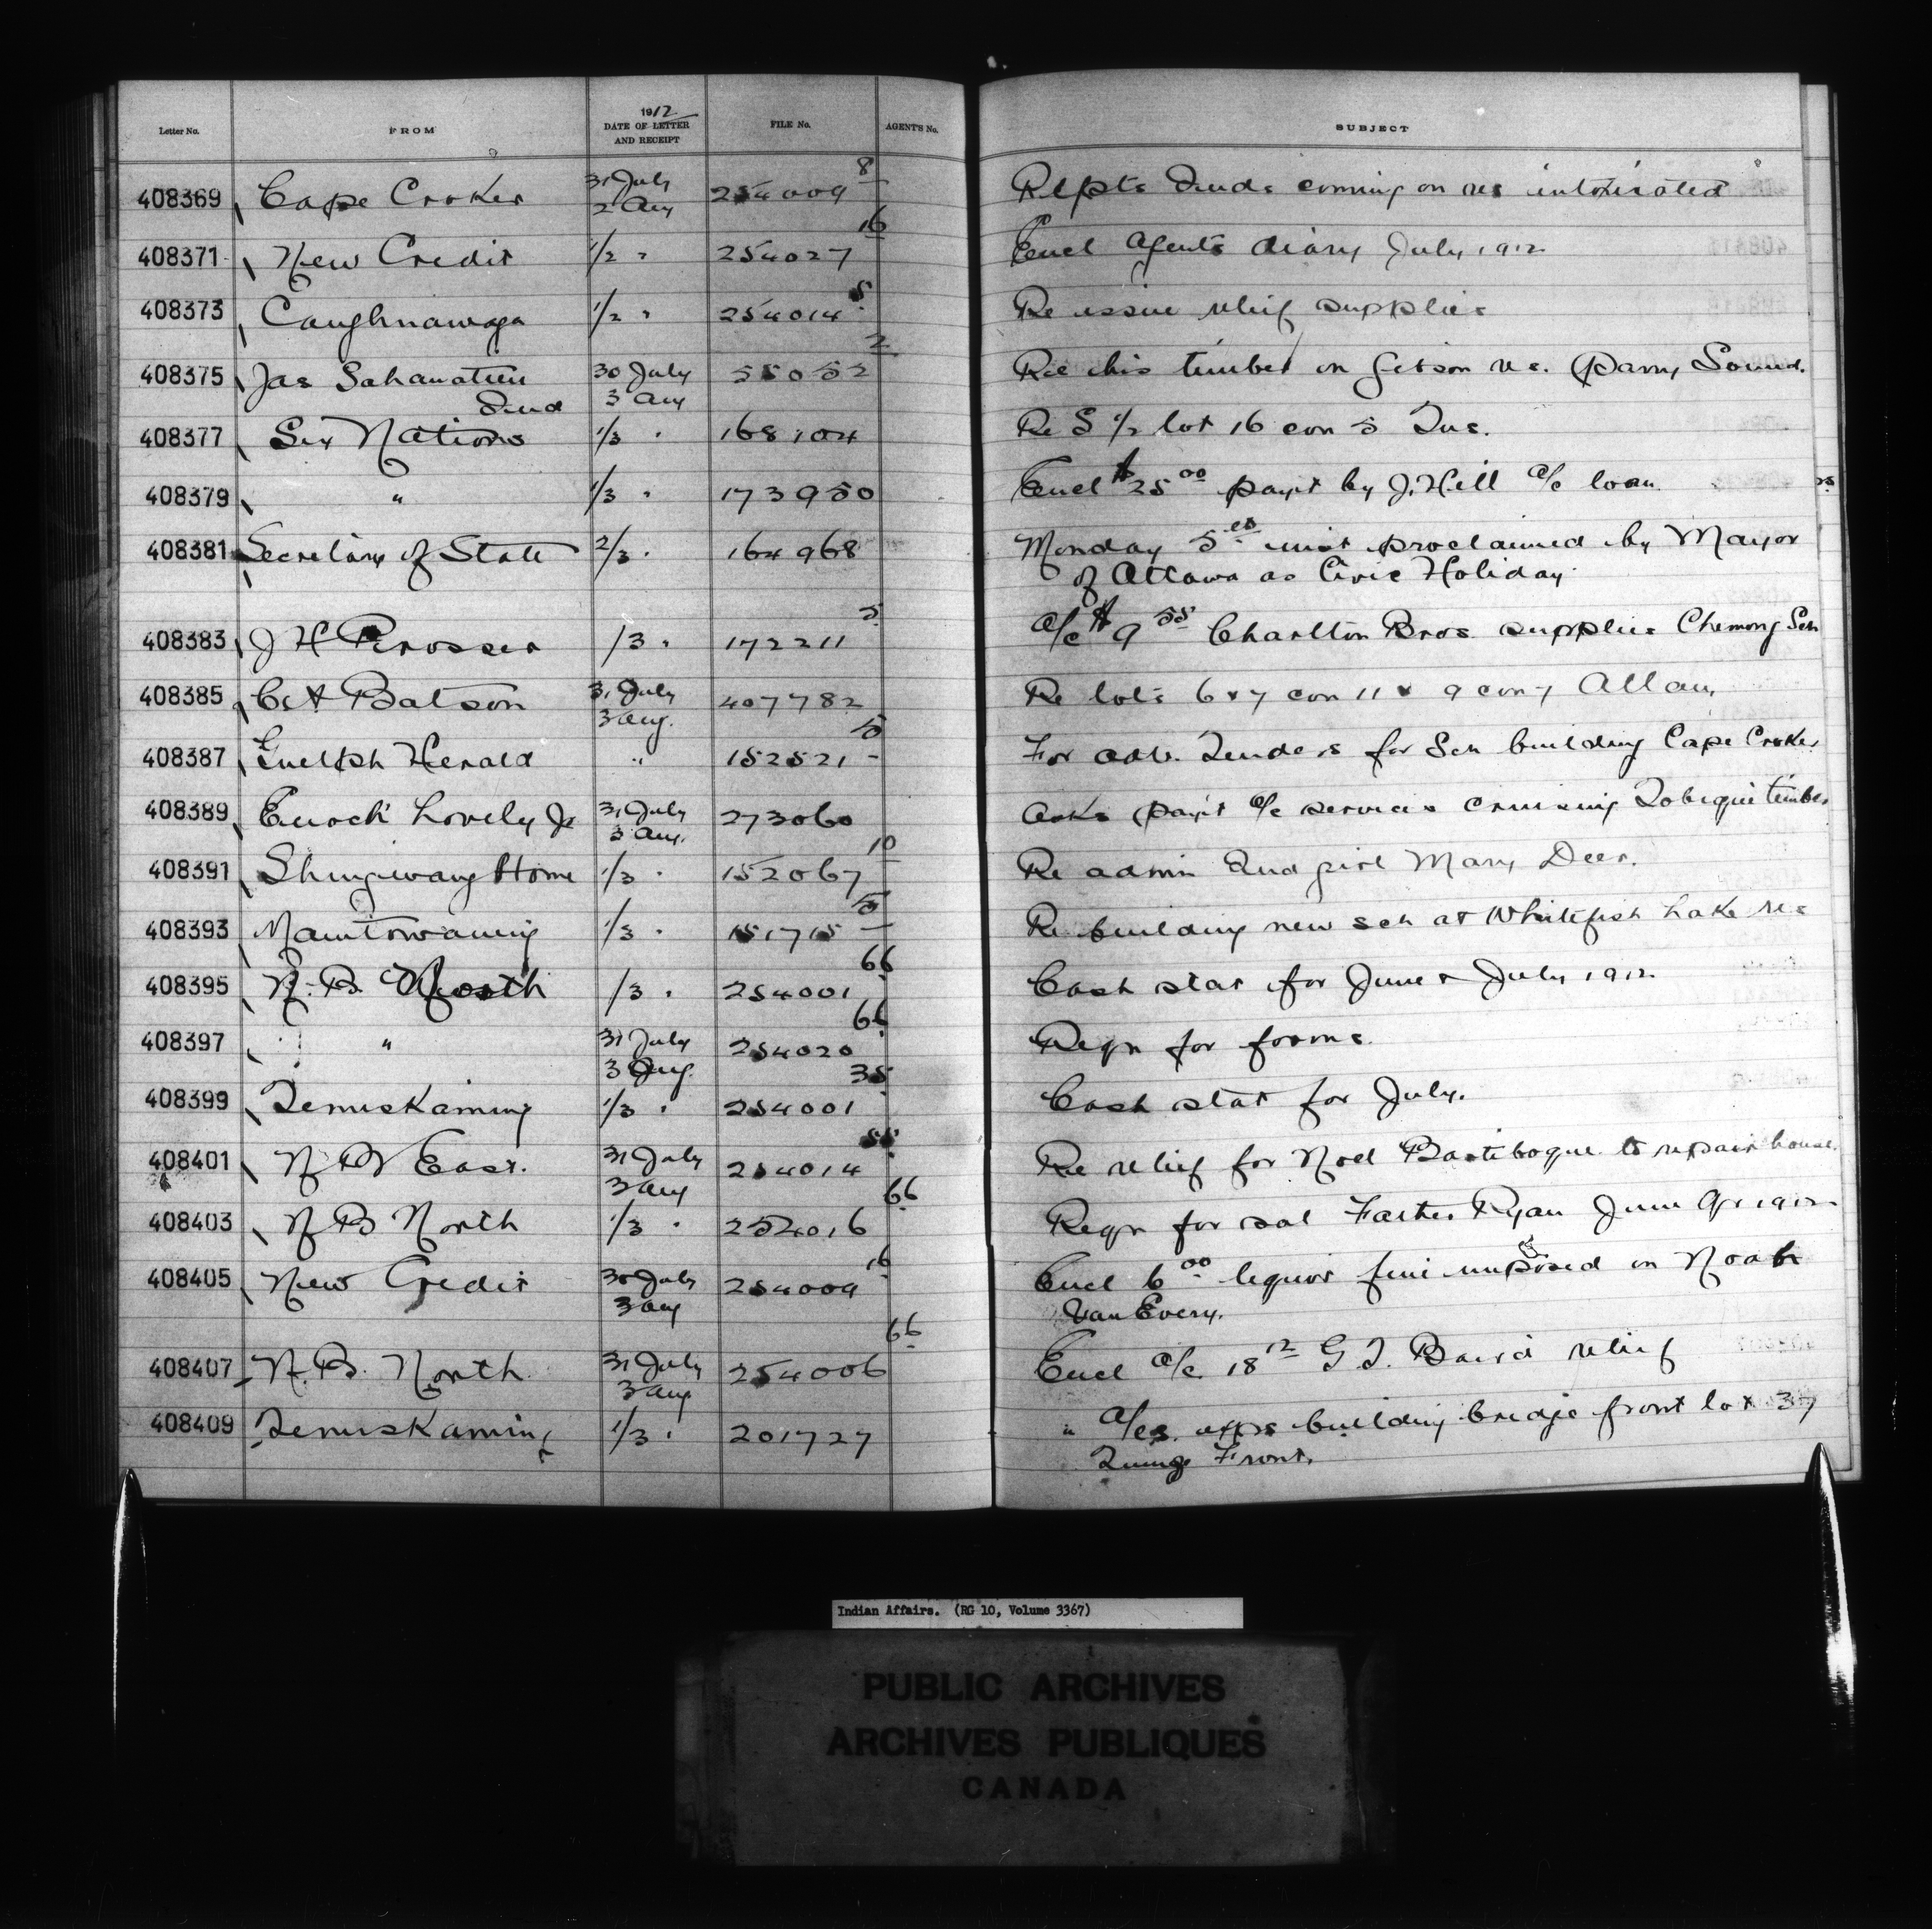 Letter No. FROM 1912 DATE OF LETTER AND RECEIPT FILE No. AGENT'S No. SUBJECT
408369 Cape Croker 31 July 2 Aug 254009 8 Repts Inds coming on res intoxicated
408371 New Credit 1/2 " 254027 16 Encl Agents diary July 1912
408373 Caughnawaga 1/2 " 254014 5 Re issue relief supplies
408375 Jas Sahanatien Ind 30 July 3 Aug 55052 2 Re his timber on Gibson res. Parry Sound.
408377 Six Nations 1/3 " 168104 Re S 1/2 lot 16 con 5 Tus.
408379 " 1/3 " 173950 Encl $25 00 payt by J. Hill a/c loan
408381 Secretary of State 2/3 " 164968 Monday 5th inst proclaimed by Mayor
of Ottawa as Civic Holiday
408383 J H Prosser /3 " 172211 5 a/c $9 55 Charlton Bros supplies Chemong Sch
408385 C A Batson 31 July 3 Aug. 407782 Re lots 6 & 7 con 11 & 9 con 7 Allan
408387 Guelph Herald " 152521 10 For adv. Tenders for Sch building Cape Croker
408389 Enoch Lovely Jr 31 July 3 Aug. 273060 Asks payt a/c services cruising Tobique timber
408391 Shingwauk Home 1/3 " 152067 10 Re admn Ind girl Mary Deer.
408393 Manitowaning 1/3 " 151715 Re building new sch at Whitefish Lake res
408395 N. B. North /3 " 254001 66 Cash stat for June & July 1912
408397 " 31 July 3 Aug. 254020 66 Reqn for forms.
408399 Temiskaming 1/3 " 254001 35 Cash stat for July.
408401 N B East. 31 July 3 Aug 254014 55 Re relief for Noel Bartibogue to repair house.
408403 N B North 1/3 " 254016 66 Reqn for sal Father Ryan June Qr 1912
408405 New Credit 30 July 3 Aug 254009 16 Encl 6 00 liquor fine imposed on Noah
Van Every.
408407 N. B. North 31 July 3 Aug 254006 66 Encl a/c 18 12 G T. Baird relief
408409 Temiskaming 1/3 " 201727 " a/cs. exps building bridge front lot 37
Front.
Indian Affairs. (RG 10, Volume 3367)
PUBLIC ARCHIVES
ARCHIVES PUBLIQUES
CANADA